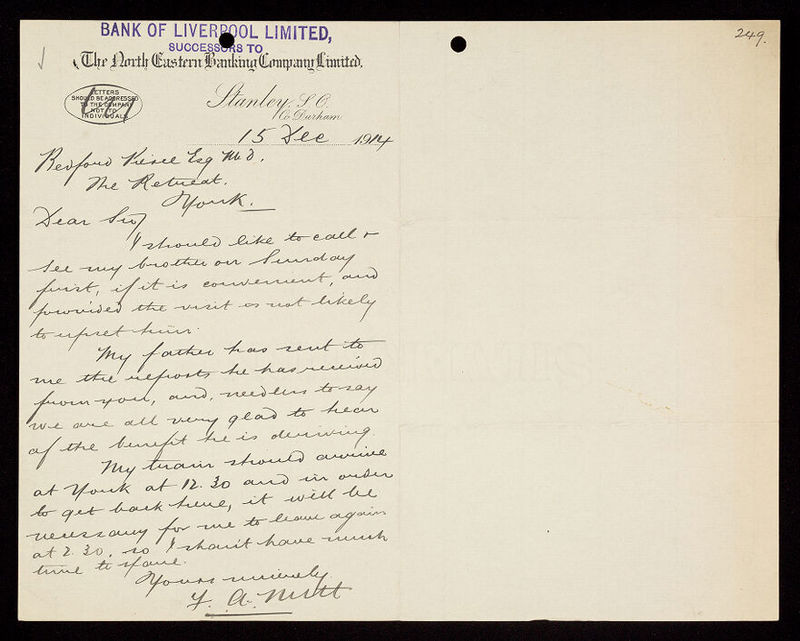 BANK OF LIVERPOOL LIMITED,
SUCCESSORS TO
The North Eastern Banking Company Limited.
249.
LETTERS
SHOULD BE ADDRESSED
TO THE COMPANY
NOT TO
INDIVIDUALS
Stanley, S.O.
Co. Durham
15 Dec 1914
Bedford Pierce Esq M.D.
The Retreat.
York.
Dear Sir,
I should like to call &
see my brother on Sunday
first, if it is convenient, and
provided the visit is not likely
to upset him.
My father has sent to
me the reports he has received
from you, and, needless to say
we are all very glad to hear
of the benefit he is deriving.
My train should arrive
at York at 12.30 and in order
to get back here, it will be
necessary for me to leave again
at 2.30, so I shan't have much
time to spare.
Yours sincerely
F. A. Nutt